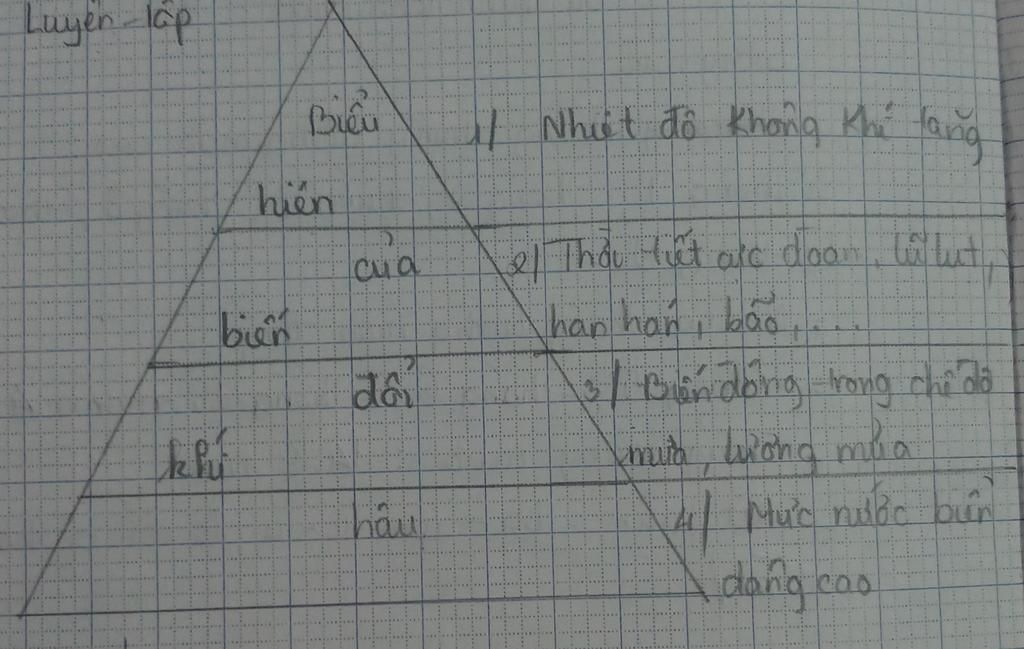 Luyện tập
Biểu
1/ Nhiệt độ không khí tăng
hiện
của
2/ Thời tiết cực đoan, lũ lụt,
biến
hạn hán, bão,...
đổi
3/ Biến động trong chế độ
khí
mưa, lượng mưa
hậu
4/ Mực nước biển
dâng cao